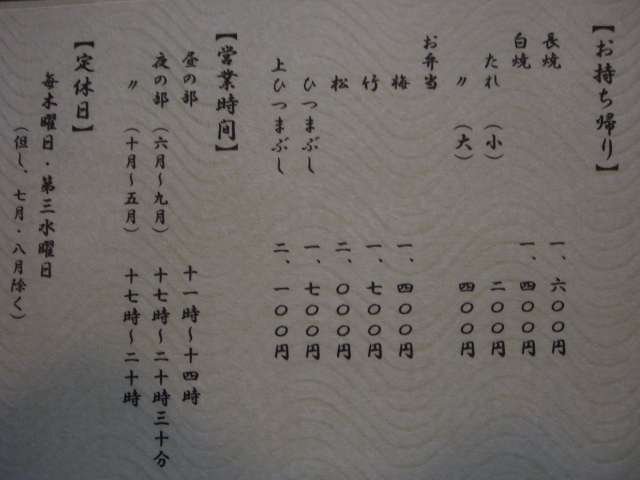 【お持ち帰り】
長焼 一、六〇〇円
白焼 一、四〇〇円
たれ （小） 二〇〇円
〃 （大） 四〇〇円
お弁当
梅 一、四〇〇円
竹 一、七〇〇円
松 二、〇〇〇円
ひつまぶし 一、七〇〇円
上ひつまぶし 二、一〇〇円
【営業時間】
昼の部 十一時〜十四時
夜の部 （六月〜九月） 十七時〜二十時三十分
〃 （十月〜五月） 十七時〜二十時
【定休日】
毎木曜日・第三水曜日
（但し、七月・八月除く）